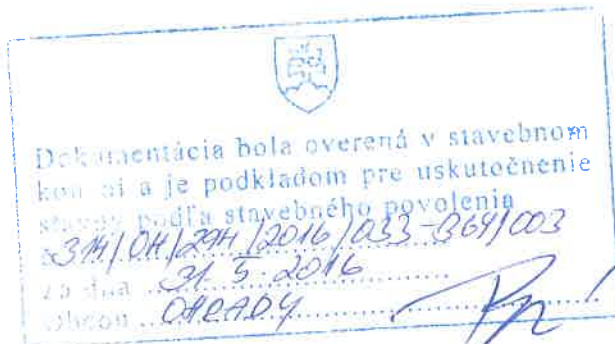 Dokumentácia bola overená v stavebnom
konaní a je podkladom pre uskutočnenie
stavby podľa stavebného povolenia
č. 314/OH/29H/2016/033-364/003
zo dňa 31. 5. 2016
Obcou OHRADY